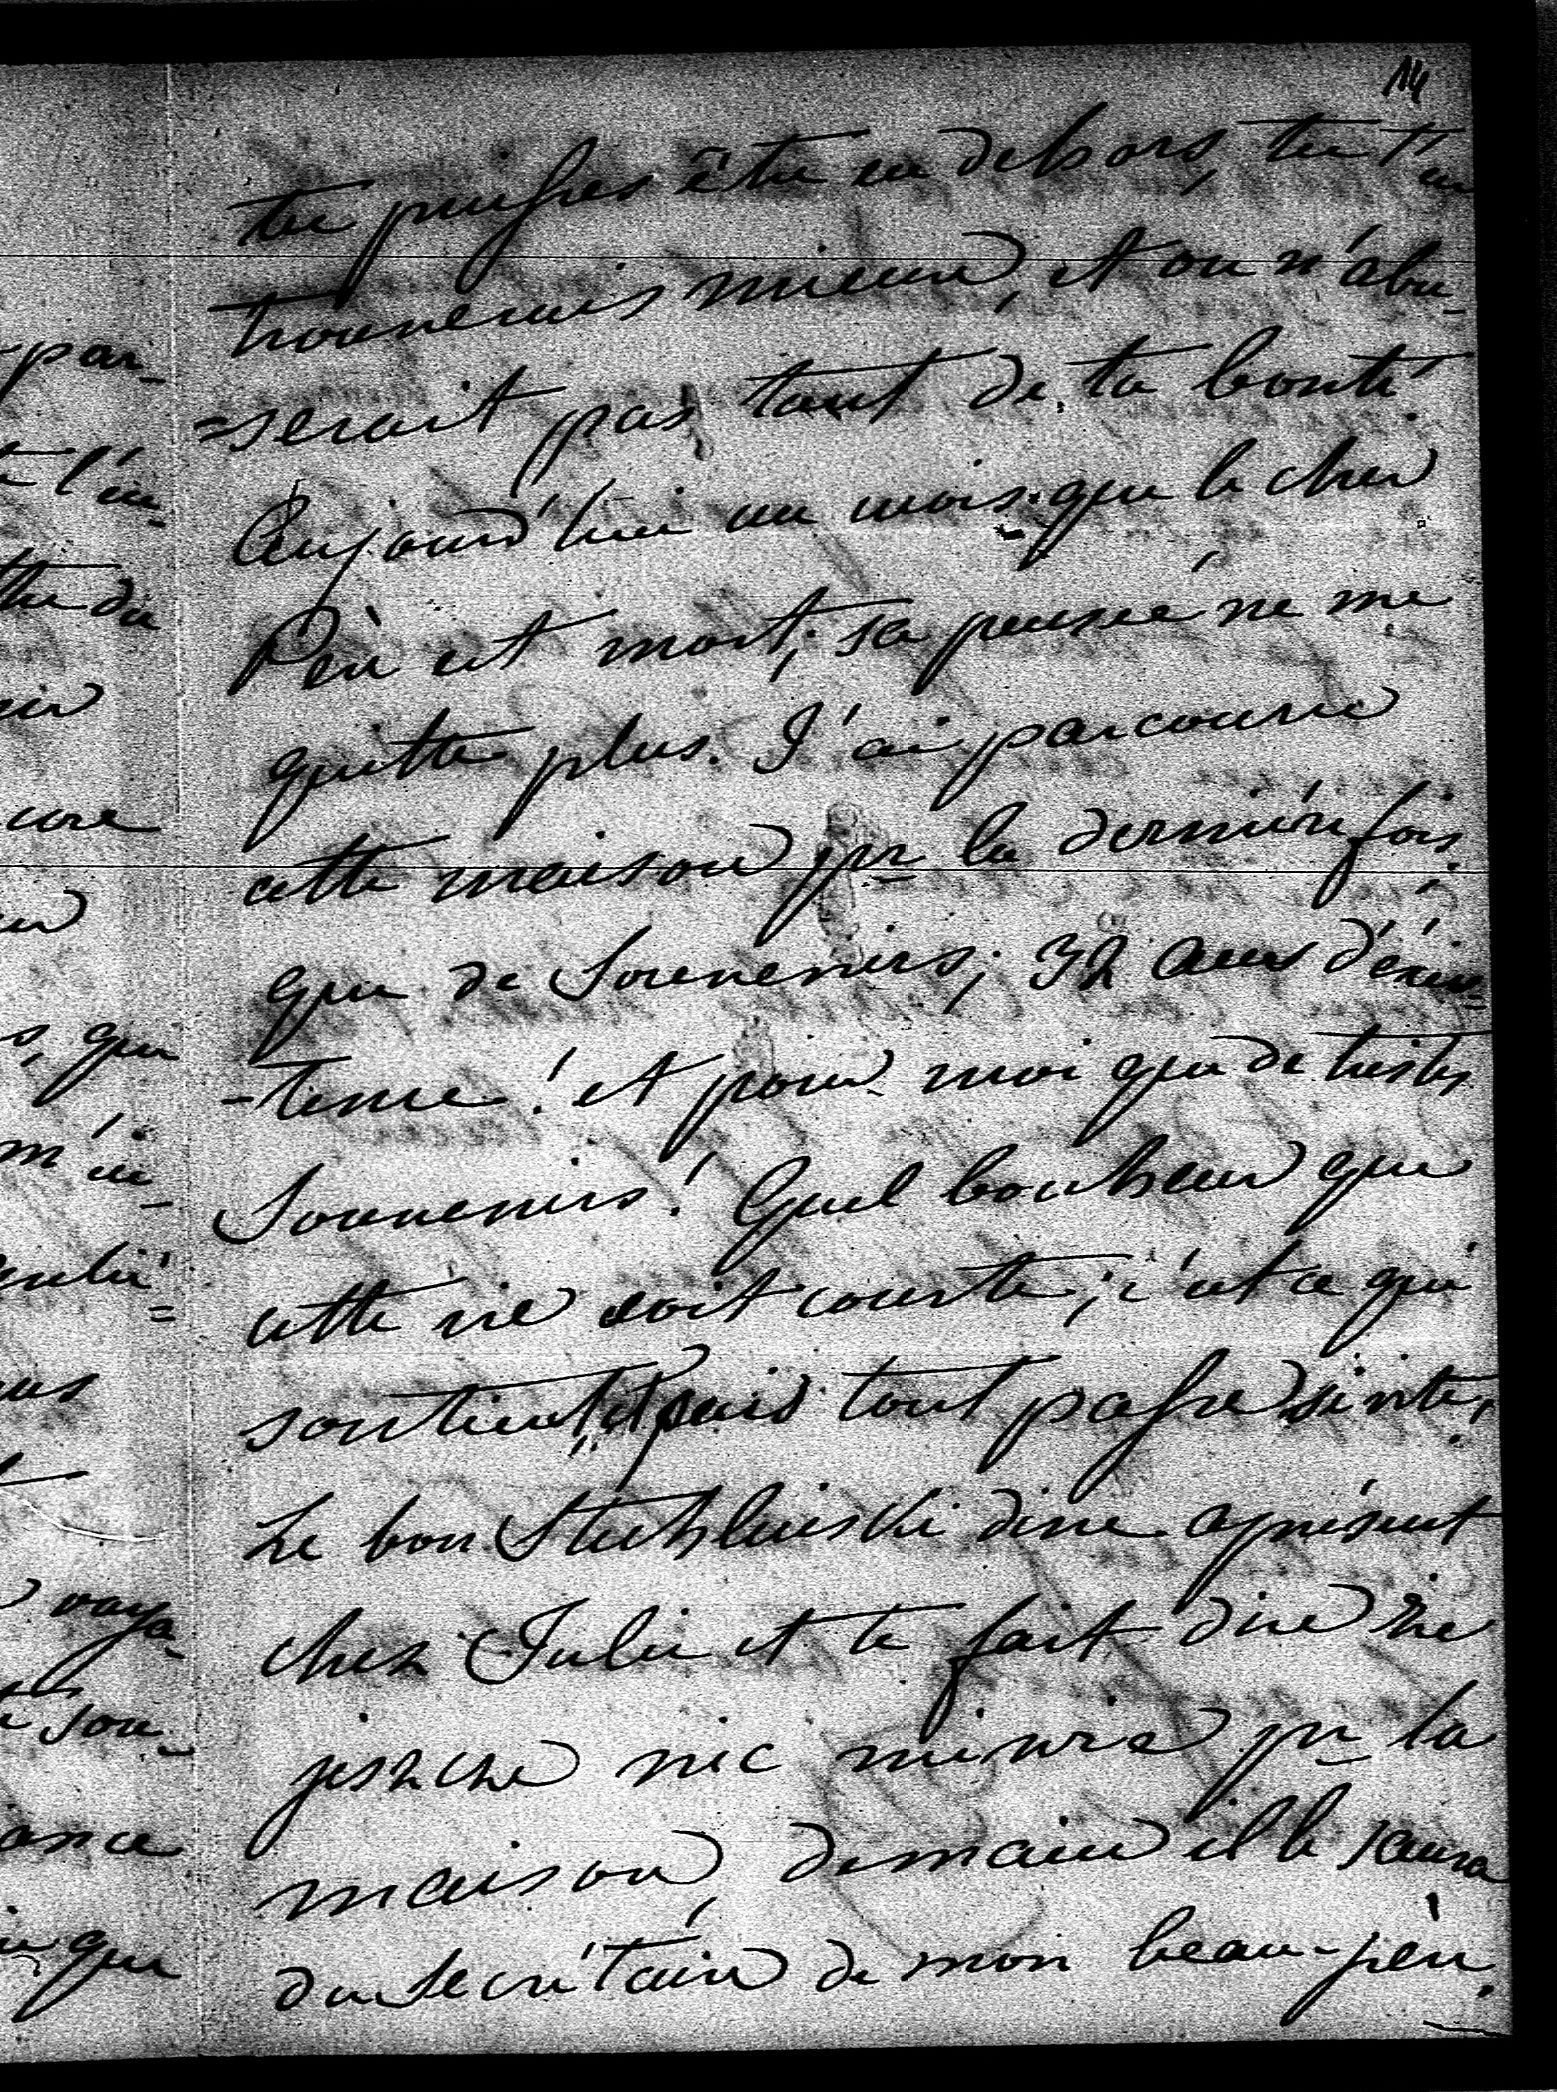 14
tu puisses être en dehors, tu t'en
trouverais mieux, et on n'abu-
=serait pas tant de ta bonté.
Aujourd'hui un mois que le cher
Père est mort; sa pensée ne me
quitte plus. J'ai parcouru
cette maison pr la dernière fois,
que de souvenirs; 32 ans d'éxis-
-tence! et pour moi que de tristes
souvenirs! Quel bonheur que
cette vie soit courte; c'est ce qui
soutient, et puis tout passe si vite,
Le bon dine àprésent
chez Julie et te fait dire że
jeszcze nic nie wie pr la
maison, demain il le saura
du secrétaire de mon beau-père.
par-
l'en-
que
m'en-
voya-
sou-
que